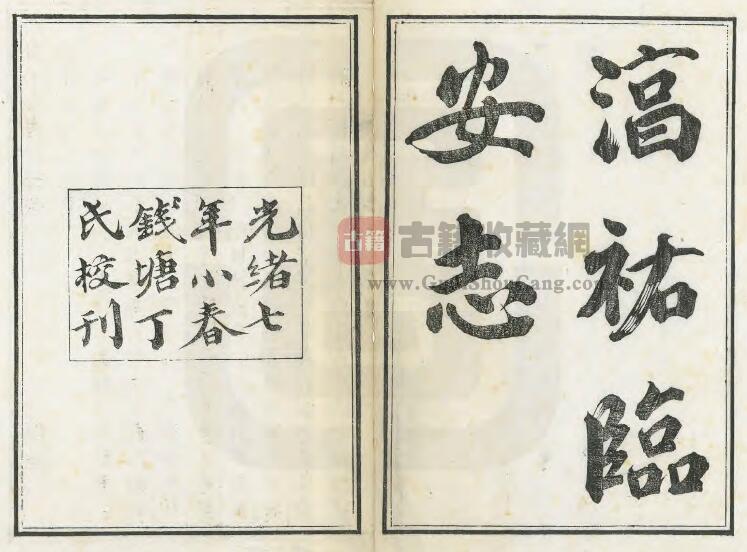 淳祐臨
安志
光緒七
年小春
錢塘丁
氏校刊
古籍
古籍收藏網
www.GuJiShouCang.com